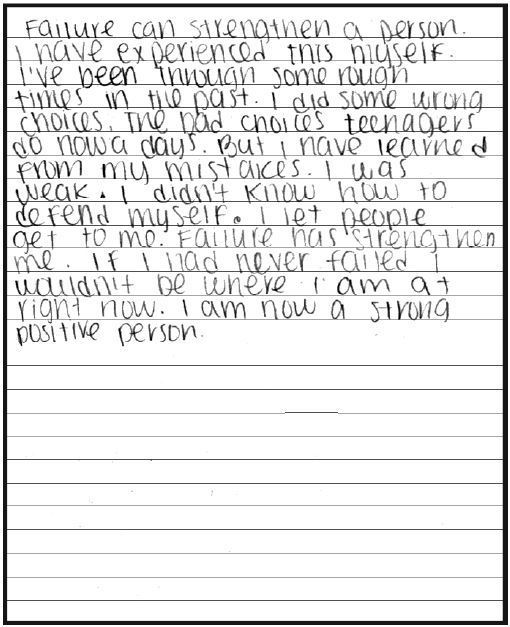 Failure can strengthen a person.
I have experienced this myself.
I've been through some rough
times in the past. I did some wrong
choices. The bad choices teenagers
do now a days. But I have learned
from my mistakes. I was
weak. I didn't know how to
defend myself. I let people
get to me. Failure has strengthen
me. If I had never failed I
wouldn't be where I am at
right now. I am now a strong
positive person.